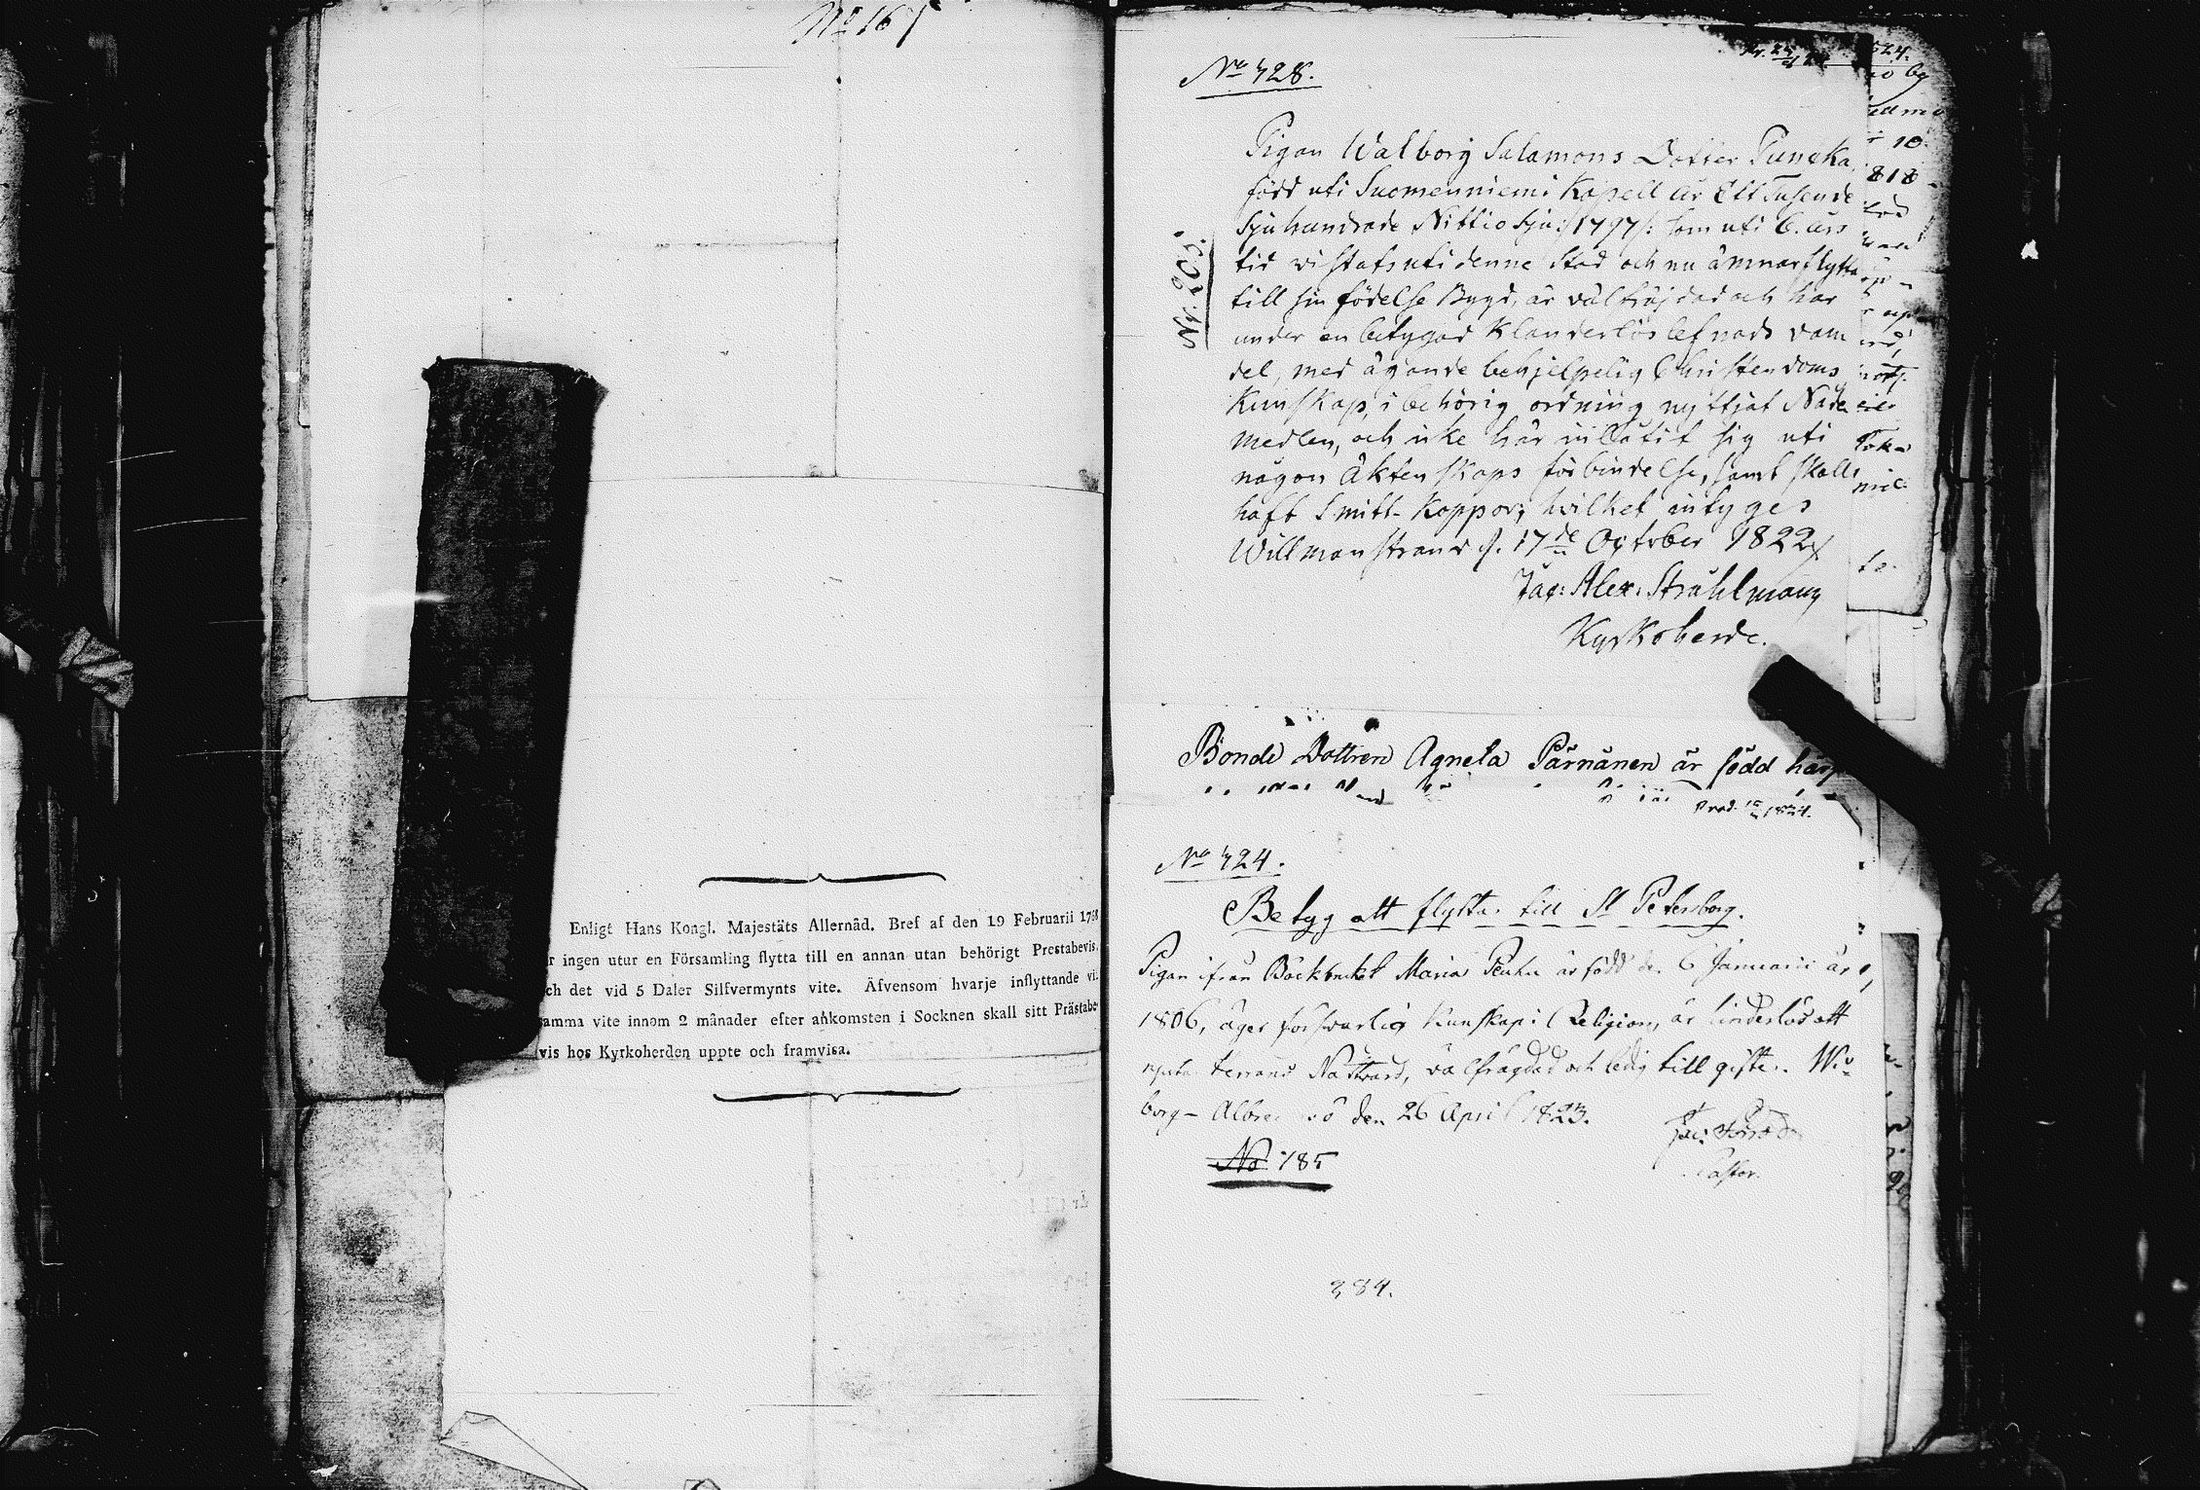 No 167
Enligt Hans Kongl. Majestäts Allernåd. Bref af den 19 Februarii 1768
r ingen utur en Församling flytta till en annan utan behörigt Prestabevis,
ch det vid 5 Daler Silfvermynts vite. Äfvensom hvarje inflyttande vi
amma vite innom 2 månader efter ankomsten i Socknen skall sitt Prästabe-
vis hos Kyrkoherden uppte och framvisa.
No 428.
Pigan Walborg Salamons Dotter Puneka,
född uti Suomenniemi Kapell år Ett Tusende
Sju hundrade Nittio Sju /: 1797 :/ som uti 6. års
tid vistats uti denne Stad och nu ämnar flytta
till sin födelse Bygd, är välfräjdad och har
under en betygad Klanderlös lefnads van
del, med ägande behjelpelig Christendoms
Kunskap, i behörig ordning nyttjat Nåde
medlen, och icke här inlåtit sig uti
någon äktenskaps förbindelse, samt skall
haft Smitt-Koppor; hvilket intyges
Willmanstrand d. 17de October 1822
Jac: Alex: Stråhlman
Kyrkoherde.
Nr. 203.
Bonde Dottren Agneta Pärnänen är född
No 424.
Betyg att flytta till St Petersborg.
Pigan ifrån Maria Peuhu är född den 6 Januarii år
1806, äger försvarlig Kunskap i Religion, är hinderlös att
njuta Herrans Nattvard, välfrägdad och ledig till gifte. Wi-
borg - den 26 April 1823.
Pastor.
No 185
384.